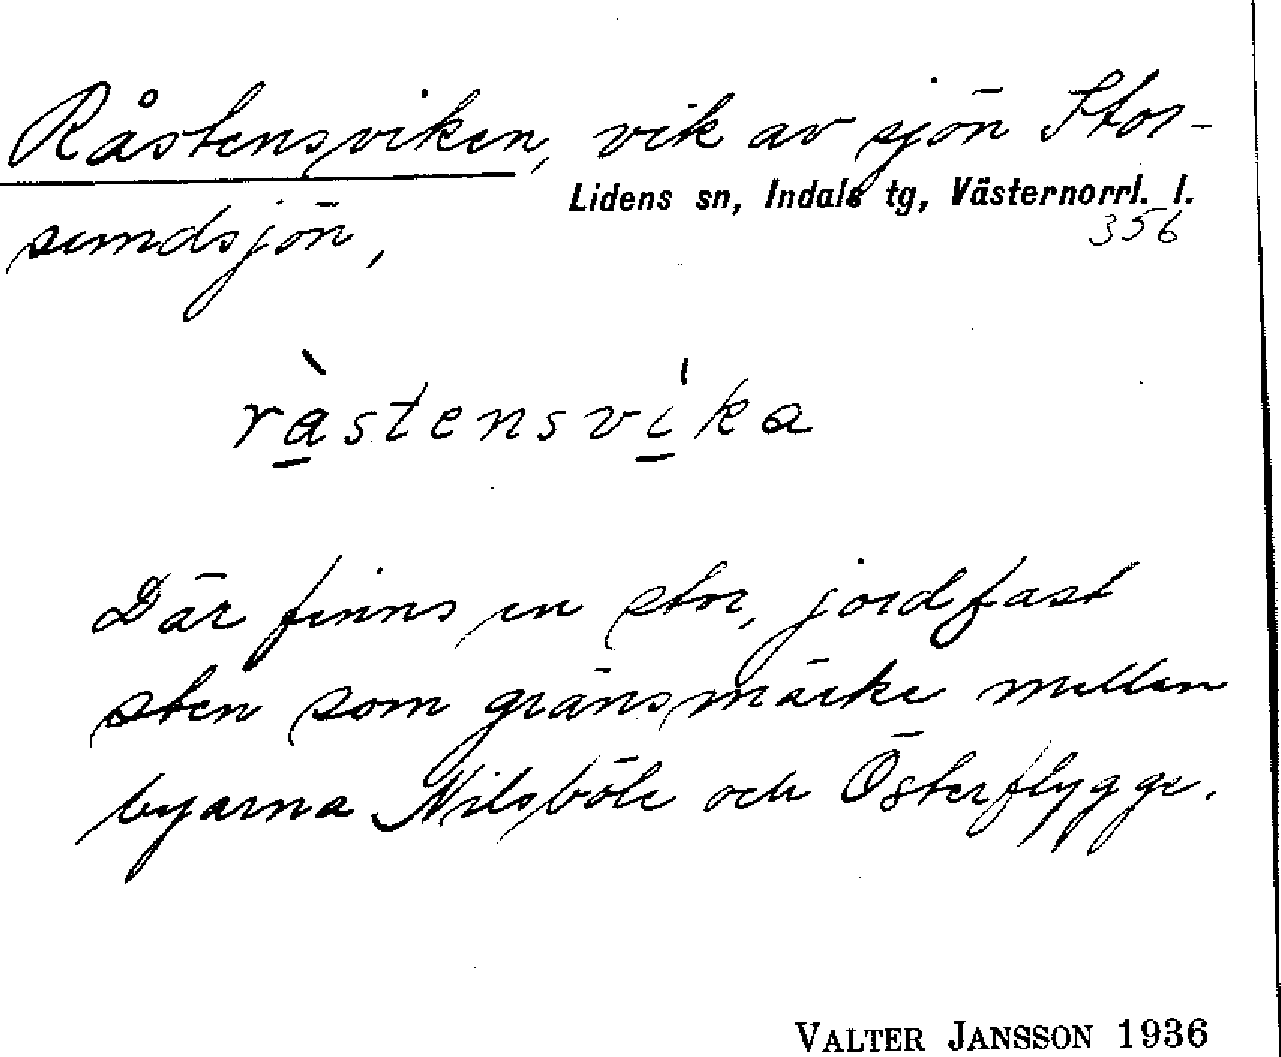 Råstensviken, vik av sjön Stor-
Lidens sn, Indals tg, Västernorrl. l.
sundsjön,
356
ràstensvi̍ka
Där finns en stor, jordfast
sten som gränsmärke mellan
byarna Nilsböle och Österflygge.
VALTER JANSSON 1936